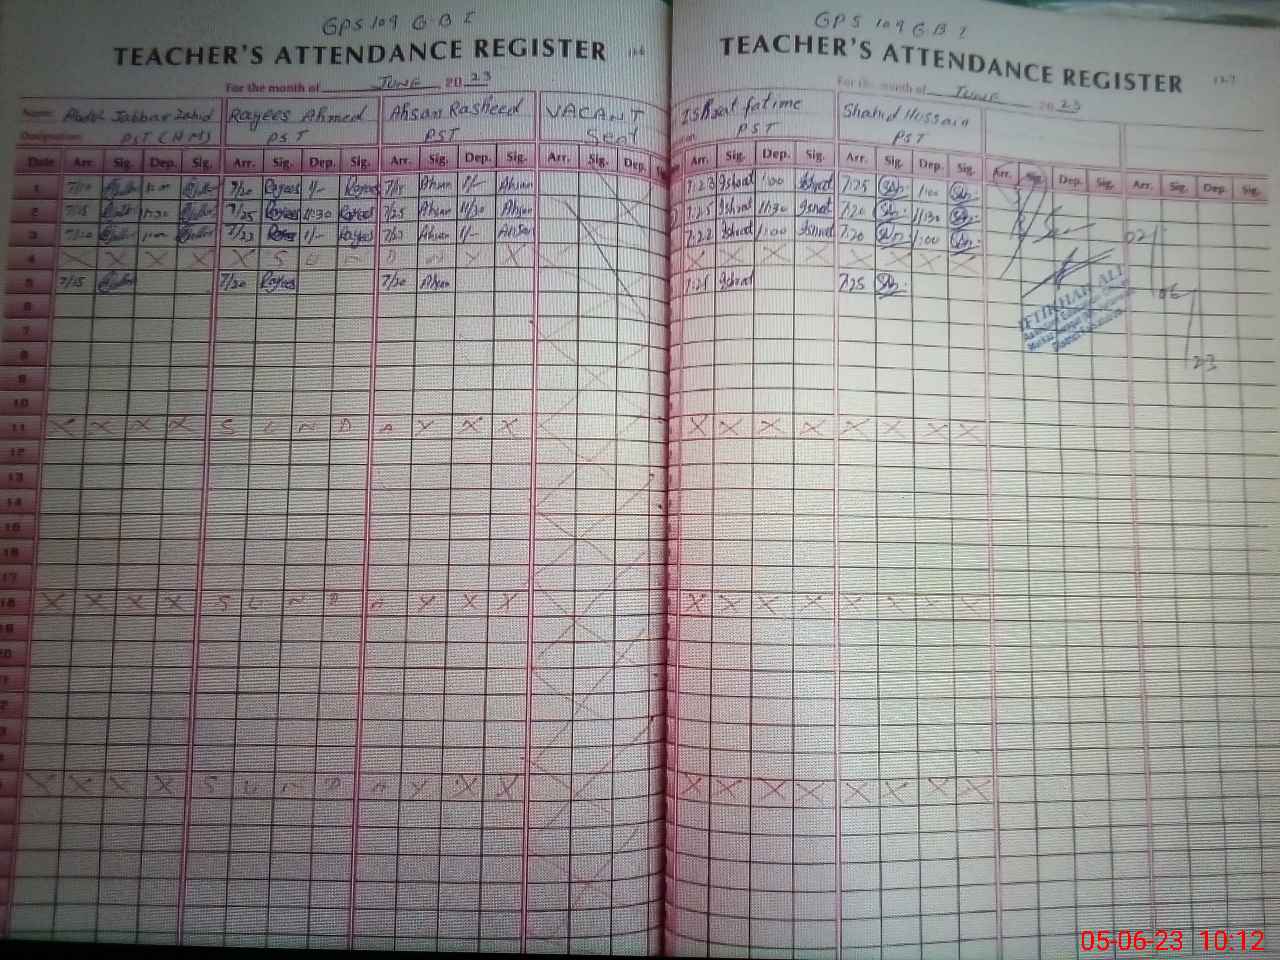 GPS 109 G B I
TEACHER'S ATTENDANCE REGISTER
For the month of JUNE 2023
Name Abdul Jabbar Zahid Rayees Ahmed Ahsan Rasheed VACANT
Designation PST (H M) PST PST Seat
Date Arr. Sig. Dep. Sig. Arr. Sig. Dep. Sig. Arr. Sig. Dep. Sig. Arr. Sig. Dep.
1 7/10 1/- Rayees 7/15 Ahsan 1/- Ahsan
2 7/15 11:30 7/25 Rayees 11:30 Rayees 7/25 Ahsan 11/30 Ahsan
3 1/- Rayees Ahsan 1/- Ahsan
4 X X X X X S U N D A Y X
5 7/15 7/20 Rayees 7/20 Ahsan
6
7
8
9
10
11 X X X X S U N D A Y X X
12
13
14
15
16
17
18 X X X X S U N D A Y X X
19
20
X X X X S U N D A Y X X
GPS 109 G B I
TEACHER'S ATTENDANCE REGISTER 127
For the month of JUNE 2023
Ishrat fatime Shahid Hussain
PST PST
Arr. Sig. Dep. Sig. Arr. Sig. Dep. Sig. Arr. Sig. Dep. Sig. Arr. Sig. Dep. Sig.
7:23 Ishrat 1:00 Ishrat 7:25 1:00
7:25 Ishrat 11:30 Ishrat 7:20 11:30
7:22 Ishrat 1:00 Ishrat 7:20 1:00
X X X X X X X X
7:25 Ishrat 7:25
X X X X X X X X
X X X X X X X X
X X X X X X X X
02/
06/
23
IFTIKHAR ALI
05-06-23 10:12